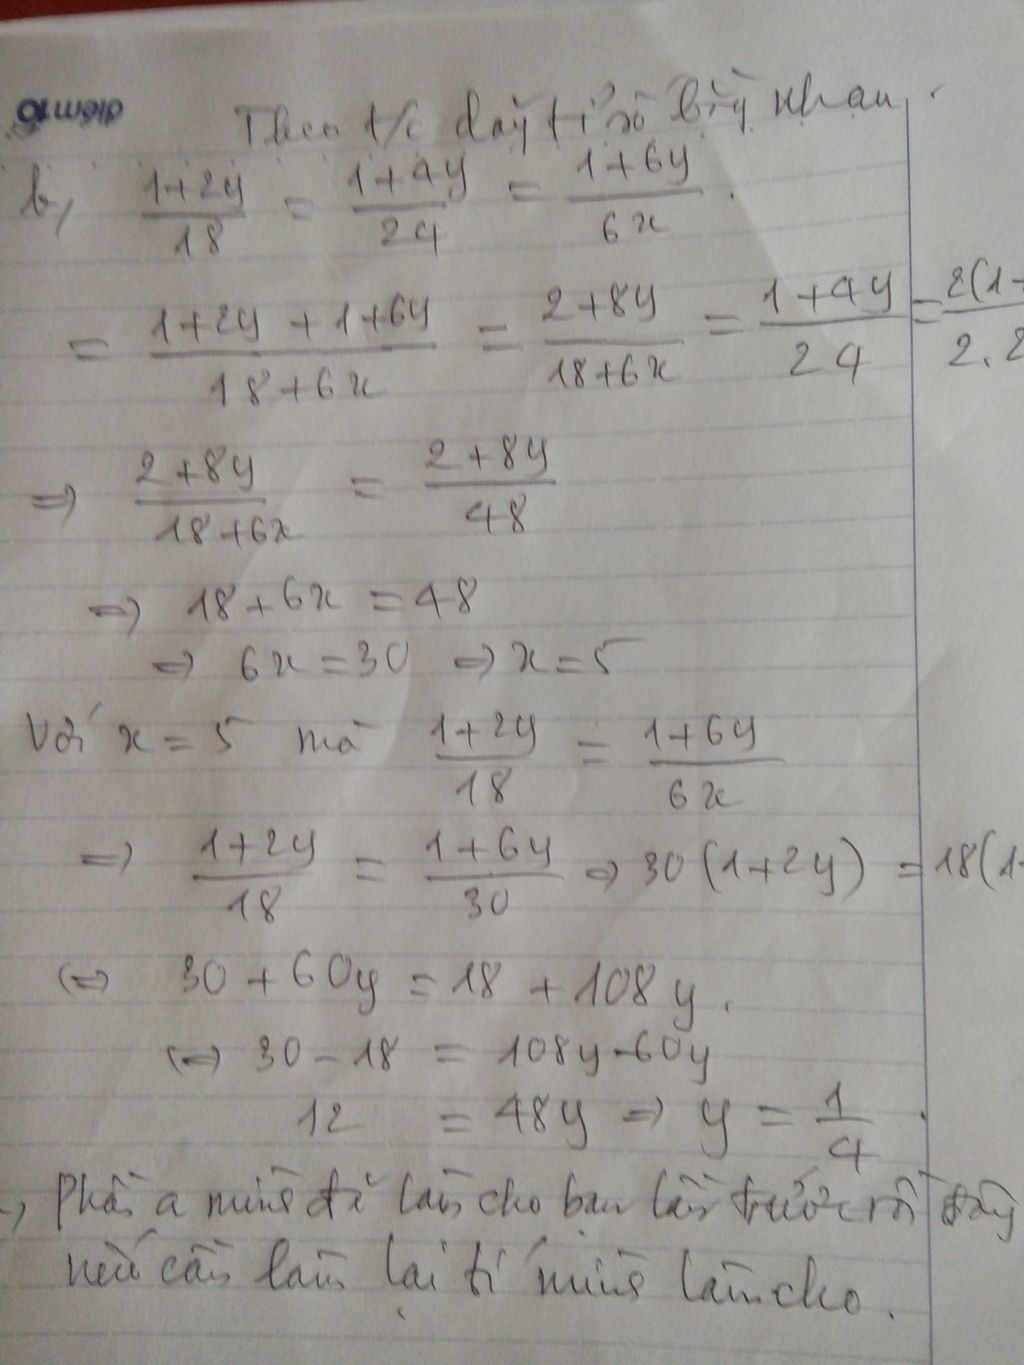 điểm 10
Theo t/c dãy tỉ số bằng nhau
b, (1+2y)/18 = (1+4y)/24 = (1+6y)/6x .
= (1+2y+1+6y)/(18+6x) = (2+8y)/(18+6x) = (1+4y)/24 = 2(1+
⇒ (2+8y)/(18+6x) = (2+8y)/48
⇒ 18+6x = 48
⇒ 6x = 30 ⇒ x = 5
Với x = 5 mà (1+2y)/18 = (1+6y)/6x
⇒ (1+2y)/18 = (1+6y)/30 ⇒ 30(1+2y) = 18(1+
⇔ 30 + 60y = 18 + 108y .
⇔ 30 - 18 = 108y - 60y
12 = 48y ⇒ y = 1/4 .
Phần a mình đã làm cho bạn lần trước rồi đấy
nếu cần làm lại tí mình làm cho .